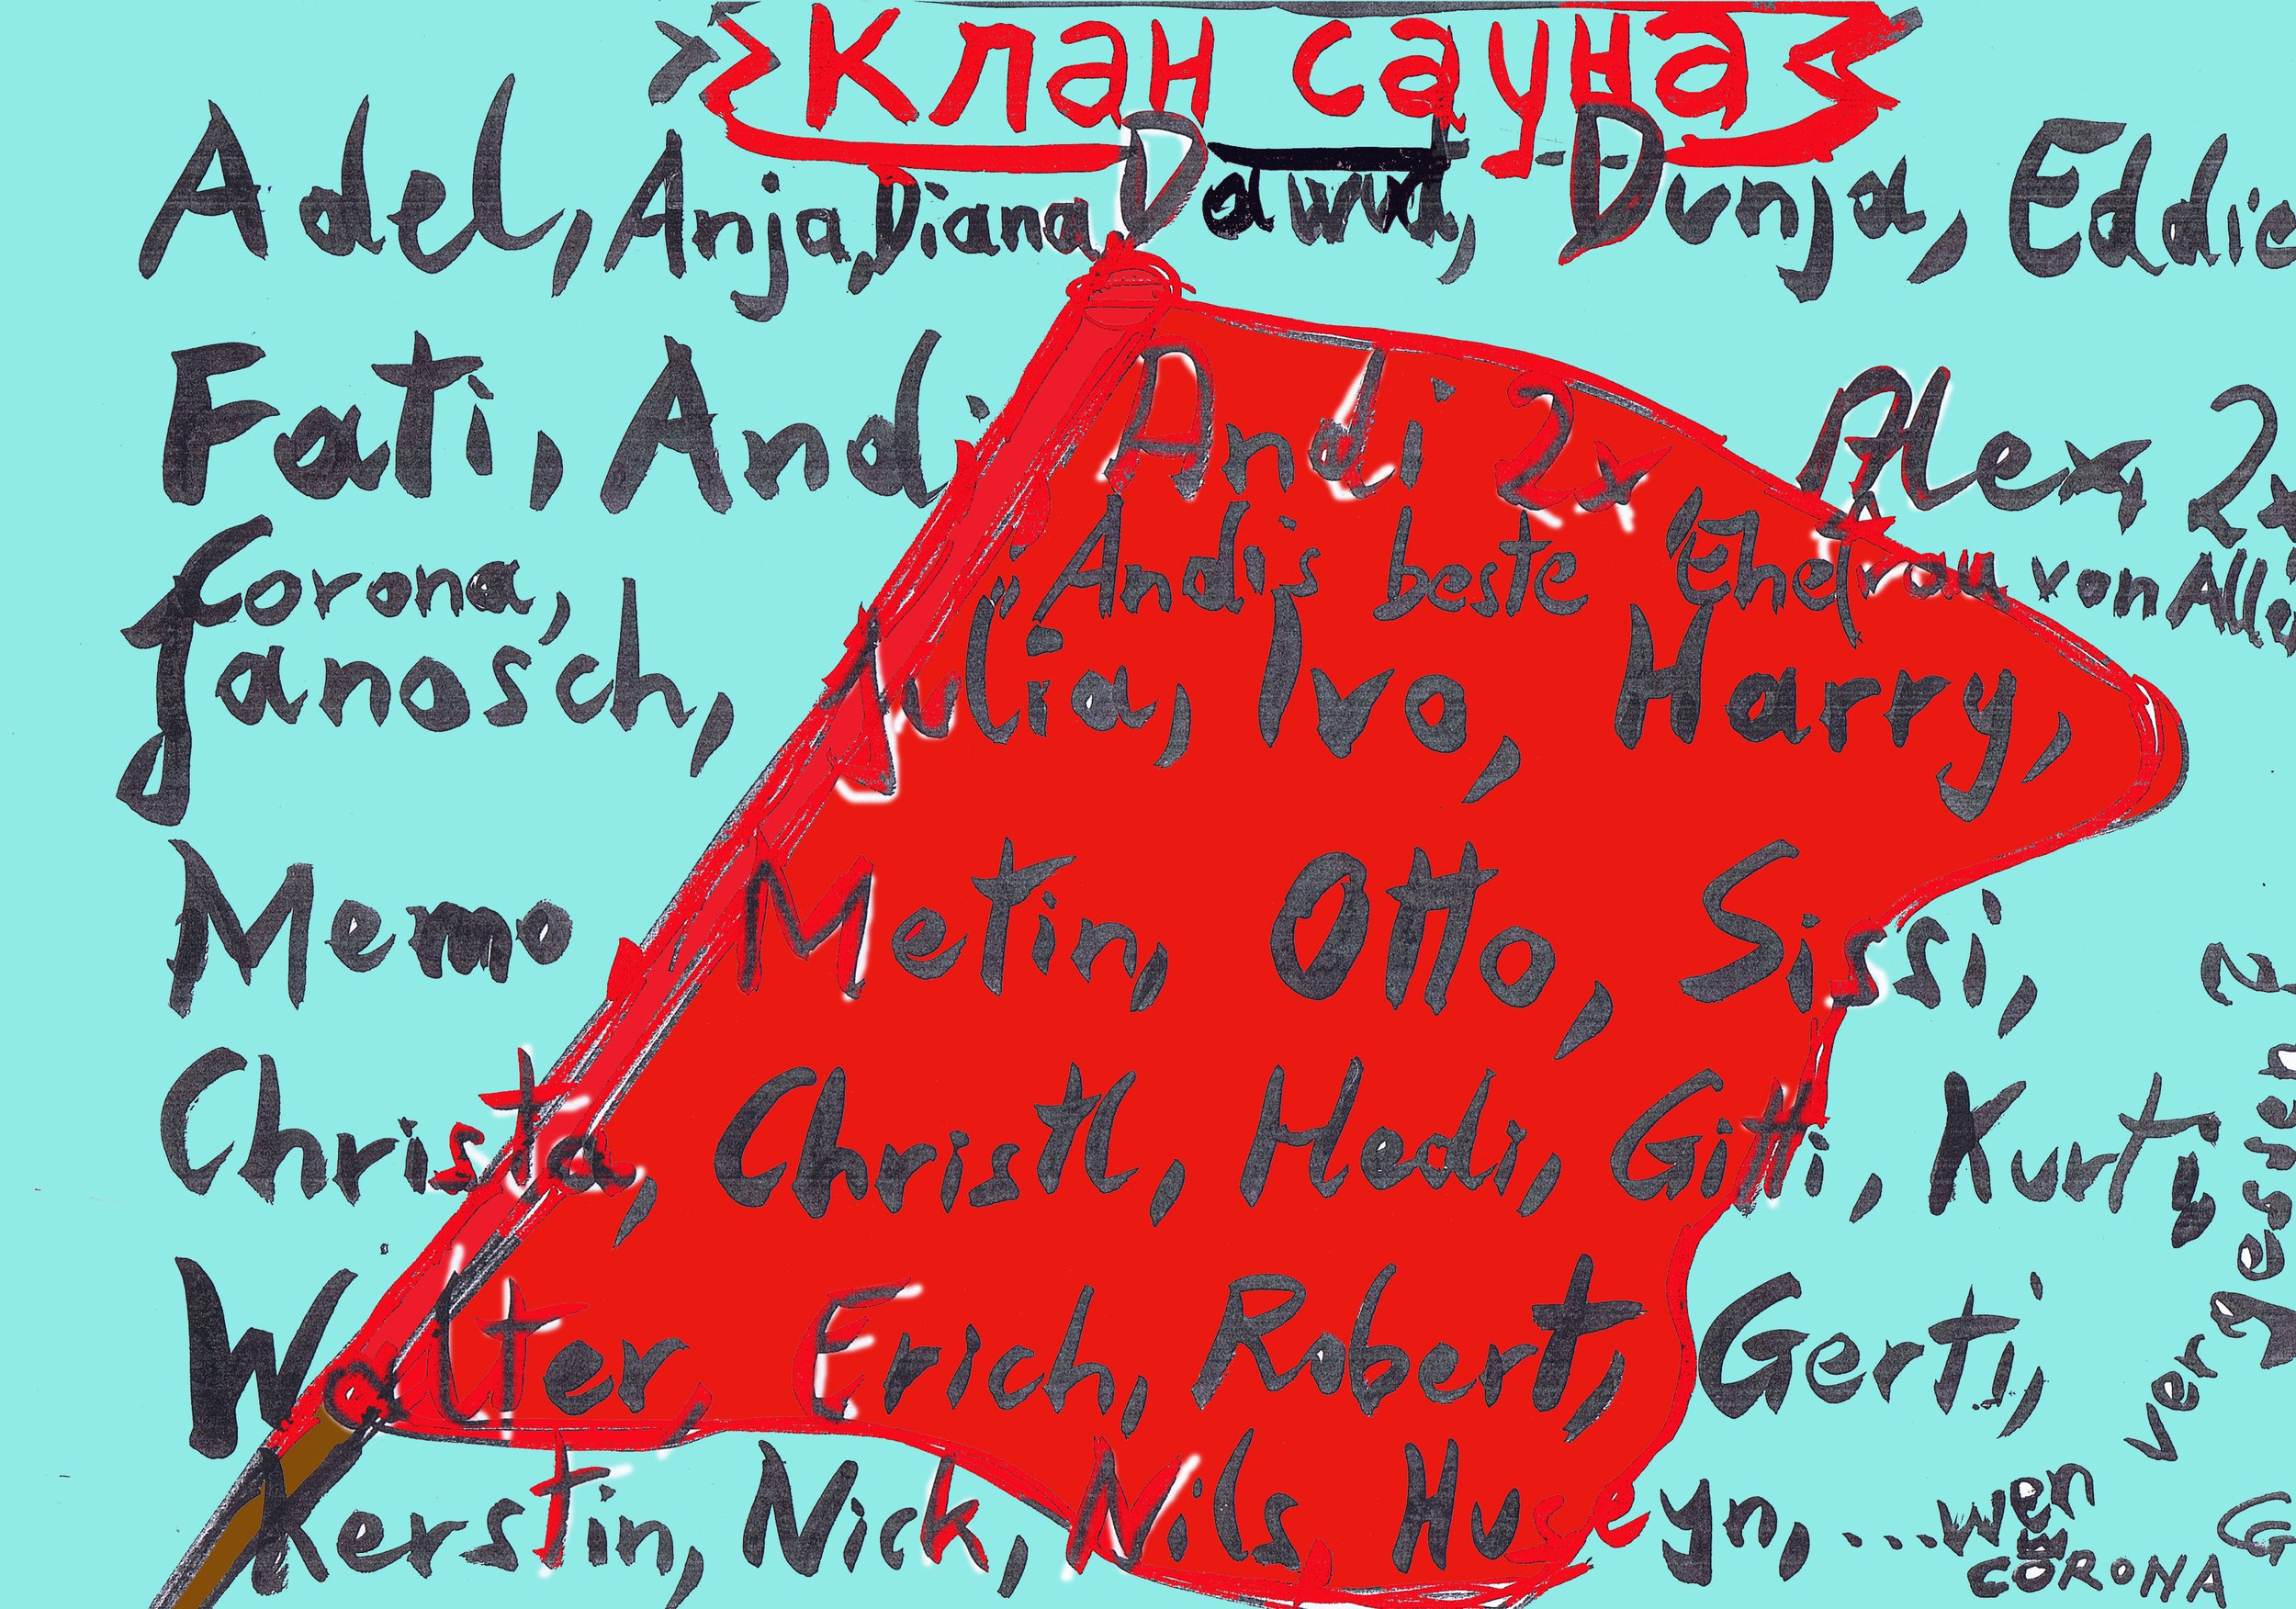 клан сауна
Adel, Anja, Diana Dawut, Dunja, Eddie
Fati, Andi Andi 2x Alex, 2x
Corona, "Andi's beste "Ehefrau von Alle
Janosch, Julia, Ivo, Harry,
Memo Metin, Otto, Sissi,
Christa, Christl, Hedi, Gitti, Kurt,
Walter, Erich, Robert, Gerti,
Kerstin, Nick, Nils, Huseyn, ...wen
vergessen?
CORONA
G